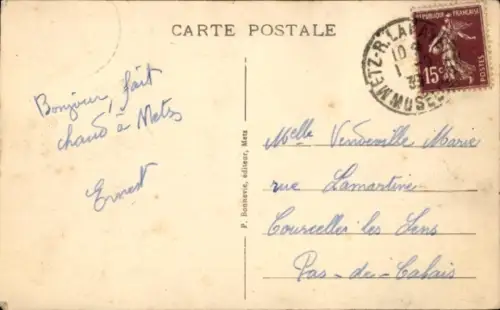 CARTE POSTALE
Bonjour, fait
chaud à Metz
Ernest
P. Bonnevie, éditeur, Metz
REPUBLIQUE FRANÇAISE
15c
POSTES
METZ-R.
10
1
MUSEE
Melle Vendeville Marie
rue Lamartine
Courcelles les Lens
Pas-de-Calais